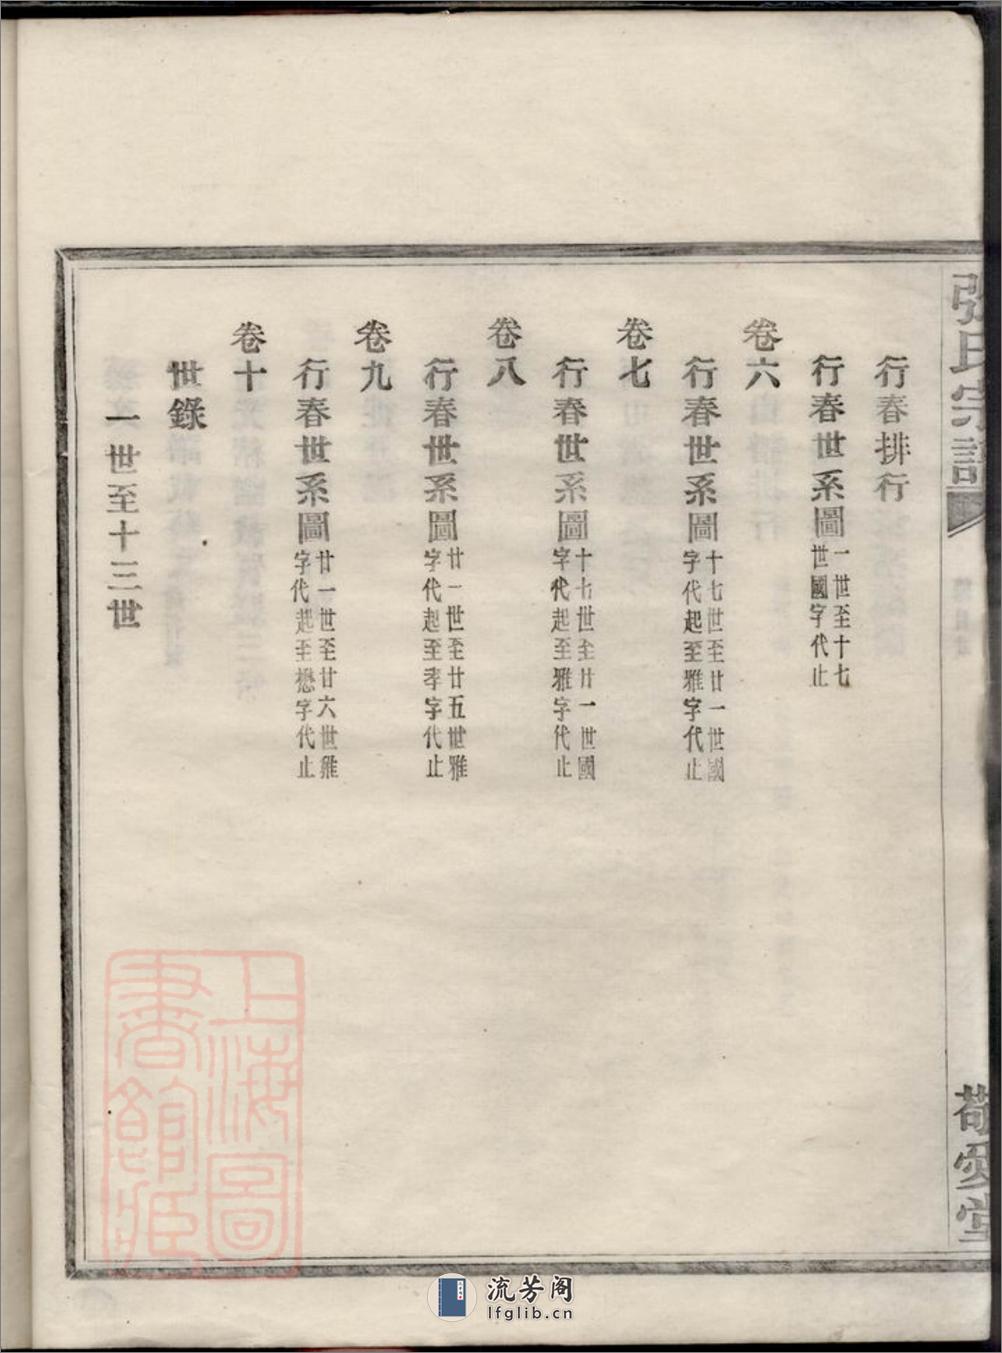 張氏宗譜
敬愛堂
行春排行
行春世系圖 一世至十七世國字代止
卷六
行春世系圖 十七世至廿一世國字代起至雅字代止
卷七
行春世系圖 十七世至廿一世國字代起至雅字代止
卷八
行春世系圖 廿一世至廿五世雅字代起至孝字代止
卷九
行春世系圖 廿一世至廿六世雅字代起至懋字代止
卷十
世錄
一世至十三世
上海圖書館藏
流芳阁
lfglib.cn